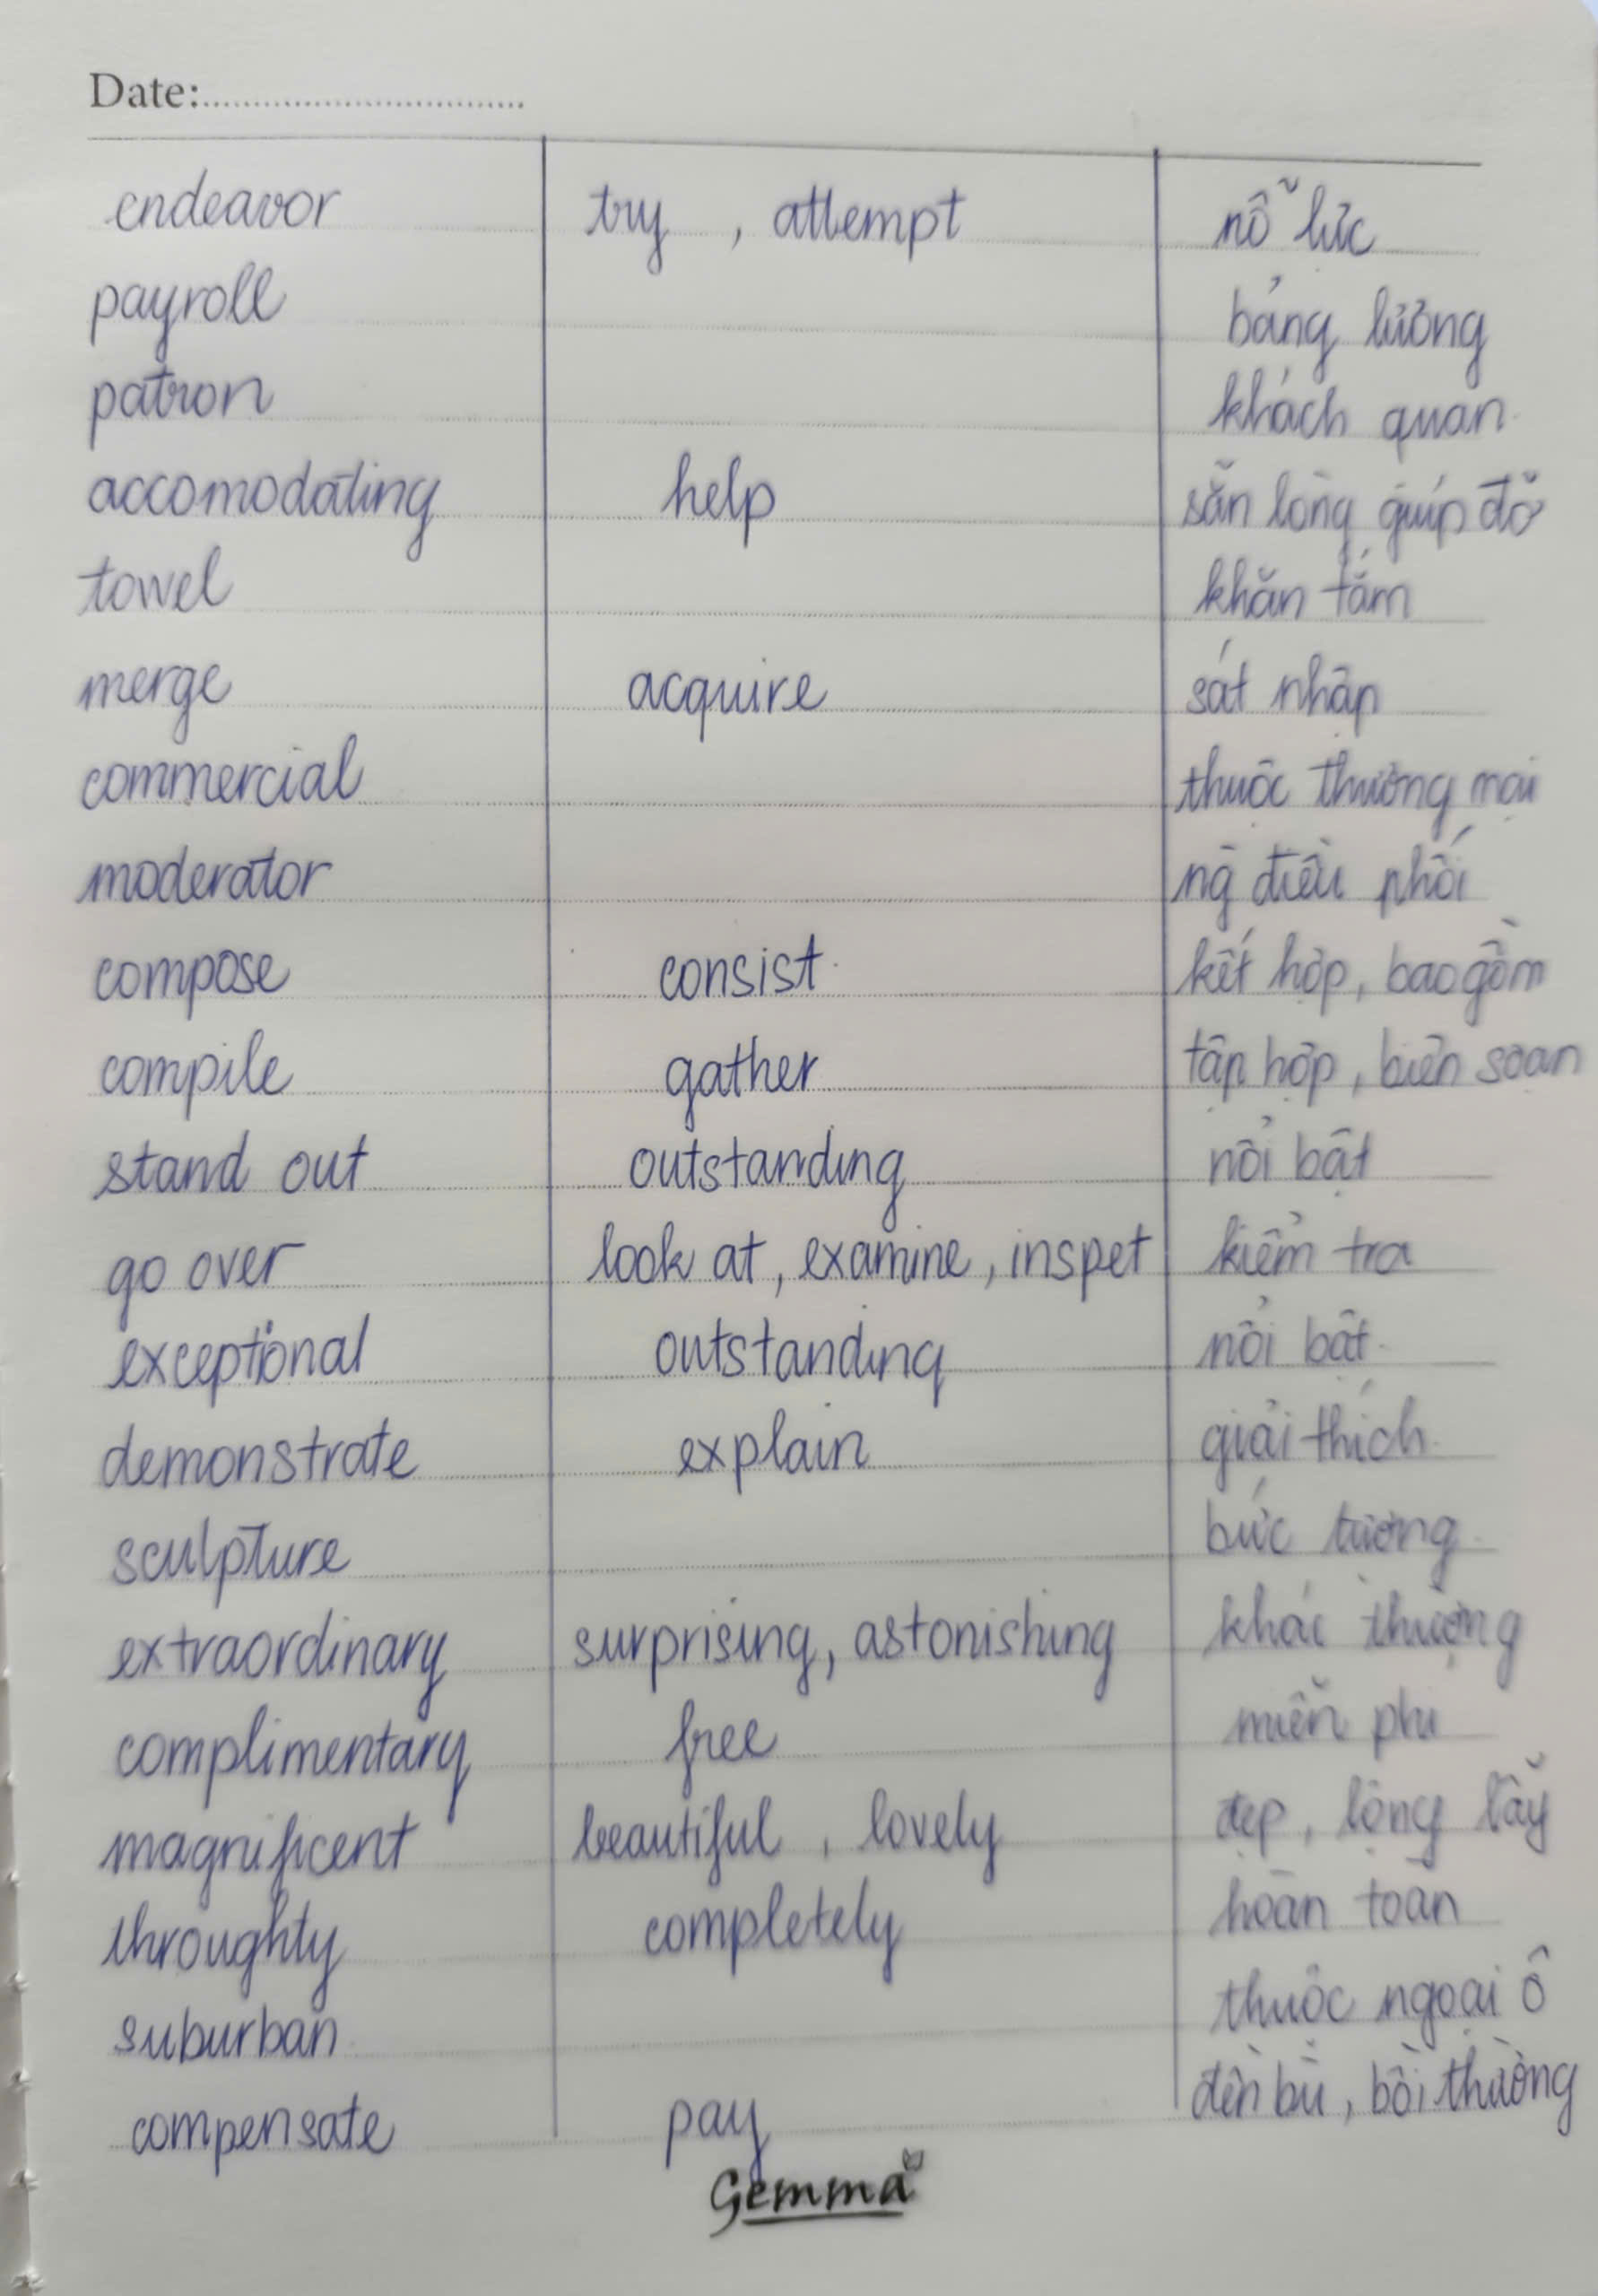 Date:................................
endeavor try , attempt nỗ lực
payroll bảng lương
patron khách quan
accomodating help sẵn lòng giúp đỡ
towel khăn tắm
merge acquire sát nhập
commercial thuộc thương mại
moderator ng điều phối
compose consist kết hợp, bao gồm
compile gather tập hợp, biên soạn
stand out outstanding nổi bật
go over look at, examine, inspet kiểm tra
exceptional outstanding nổi bật
demonstrate explain giải thích
sculpture bức tượng
extraordinary surprising, astonishing khác thường
complimentary free miễn phí
magnificent beautiful , lovely đẹp, lộng lẫy
throughty completely hoàn toàn
suburban thuộc ngoại ô
compensate pay đền bù, bồi thường
Gemma